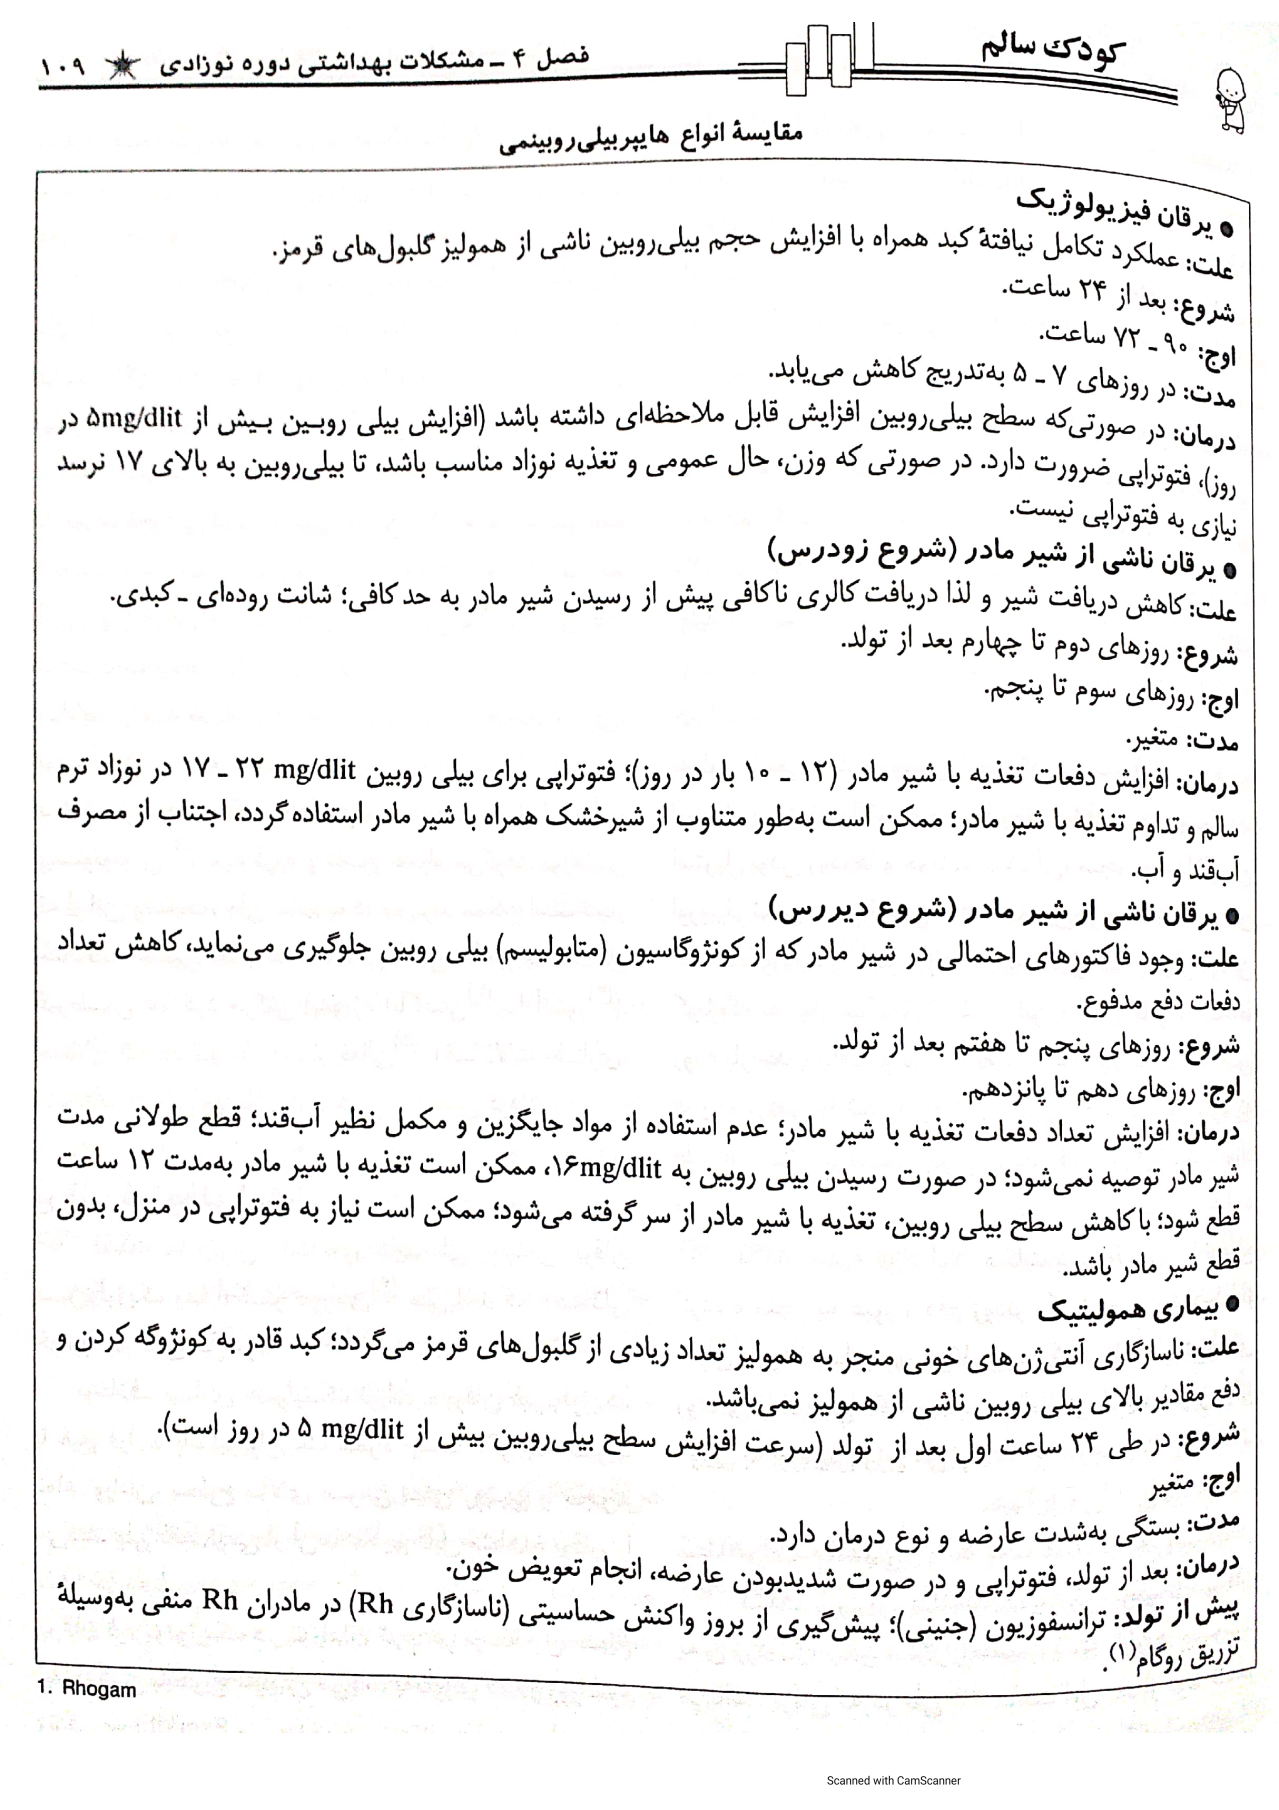 کودک سالم
فصل ۴ ـ مشکلات بهداشتی دوره نوزادی ۱۰۹
مقایسهٔ انواع هایپربیلی‌روبینمی
● یرقان فیزیولوژیک
علت: عملکرد تکامل نیافتهٔ کبد همراه با افزایش حجم بیلی‌روبین ناشی از همولیز گلبول‌های قرمز.
شروع: بعد از ۲۴ ساعت.
اوج: ۹۰ ـ ۷۲ ساعت.
مدت: در روزهای ۷ ـ ۵ به‌تدریج کاهش می‌یابد.
درمان: در صورتی‌که سطح بیلی‌روبین افزایش قابل ملاحظه‌ای داشته باشد (افزایش بیلی روبین بیش از ۵mg/dlit در
روز)، فتوتراپی ضرورت دارد. در صورتی که وزن، حال عمومی و تغذیه نوزاد مناسب باشد، تا بیلی‌روبین به بالای ۱۷ نرسد
نیازی به فتوتراپی نیست.
● یرقان ناشی از شیر مادر (شروع زودرس)
علت: کاهش دریافت شیر و لذا دریافت کالری ناکافی پیش از رسیدن شیر مادر به حد کافی؛ شانت روده‌ای ـ کبدی.
شروع: روزهای دوم تا چهارم بعد از تولد.
اوج: روزهای سوم تا پنجم.
مدت: متغیر.
درمان: افزایش دفعات تغذیه با شیر مادر (۱۲ ـ ۱۰ بار در روز)؛ فتوتراپی برای بیلی روبین ۲۲ mg/dlit ـ ۱۷ در نوزاد ترم
سالم و تداوم تغذیه با شیر مادر؛ ممکن است به‌طور متناوب از شیرخشک همراه با شیر مادر استفاده گردد، اجتناب از مصرف
آب‌قند و آب.
● یرقان ناشی از شیر مادر (شروع دیررس)
علت: وجود فاکتورهای احتمالی در شیر مادر که از کونژوگاسیون (متابولیسم) بیلی روبین جلوگیری می‌نماید، کاهش تعداد
دفعات دفع مدفوع.
شروع: روزهای پنجم تا هفتم بعد از تولد.
اوج: روزهای دهم تا پانزدهم.
درمان: افزایش تعداد دفعات تغذیه با شیر مادر؛ عدم استفاده از مواد جایگزین و مکمل نظیر آب‌قند؛ قطع طولانی مدت
شیر مادر توصیه نمی‌شود؛ در صورت رسیدن بیلی روبین به ۱۶mg/dlit، ممکن است تغذیه با شیر مادر به‌مدت ۱۲ ساعت
قطع شود؛ با کاهش سطح بیلی روبین، تغذیه با شیر مادر از سر گرفته می‌شود؛ ممکن است نیاز به فتوتراپی در منزل، بدون
قطع شیر مادر باشد.
● بیماری همولیتیک
علت: ناسازگاری آنتی‌ژن‌های خونی منجر به همولیز تعداد زیادی از گلبول‌های قرمز می‌گردد؛ کبد قادر به کونژوگه کردن و
دفع مقادیر بالای بیلی روبین ناشی از همولیز نمی‌باشد.
شروع: در طی ۲۴ ساعت اول بعد از تولد (سرعت افزایش سطح بیلی‌روبین بیش از ۵ mg/dlit در روز است).
اوج: متغیر
مدت: بستگی به‌شدت عارضه و نوع درمان دارد.
درمان: بعد از تولد، فتوتراپی و در صورت شدیدبودن عارضه، انجام تعویض خون.
پیش از تولد: ترانسفوزیون (جنینی)؛ پیش‌گیری از بروز واکنش حساسیتی (ناسازگاری Rh) در مادران Rh منفی به‌وسیلهٔ
تزریق روگام(۱).
1. Rhogam
Scanned with CamScanner